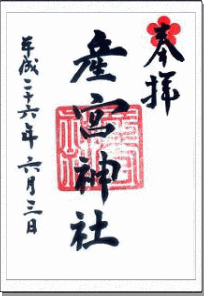 奉拝
産宮神社
平成二十六年六月三日